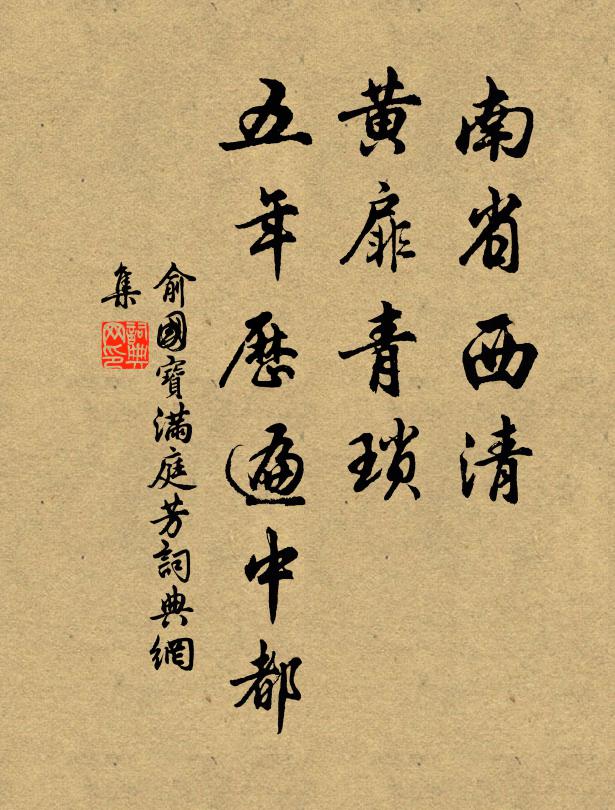 南省西清
黃扉青瑣
五年歷遍中都
俞國寶滿庭芳詞典網
集
詞典
网印